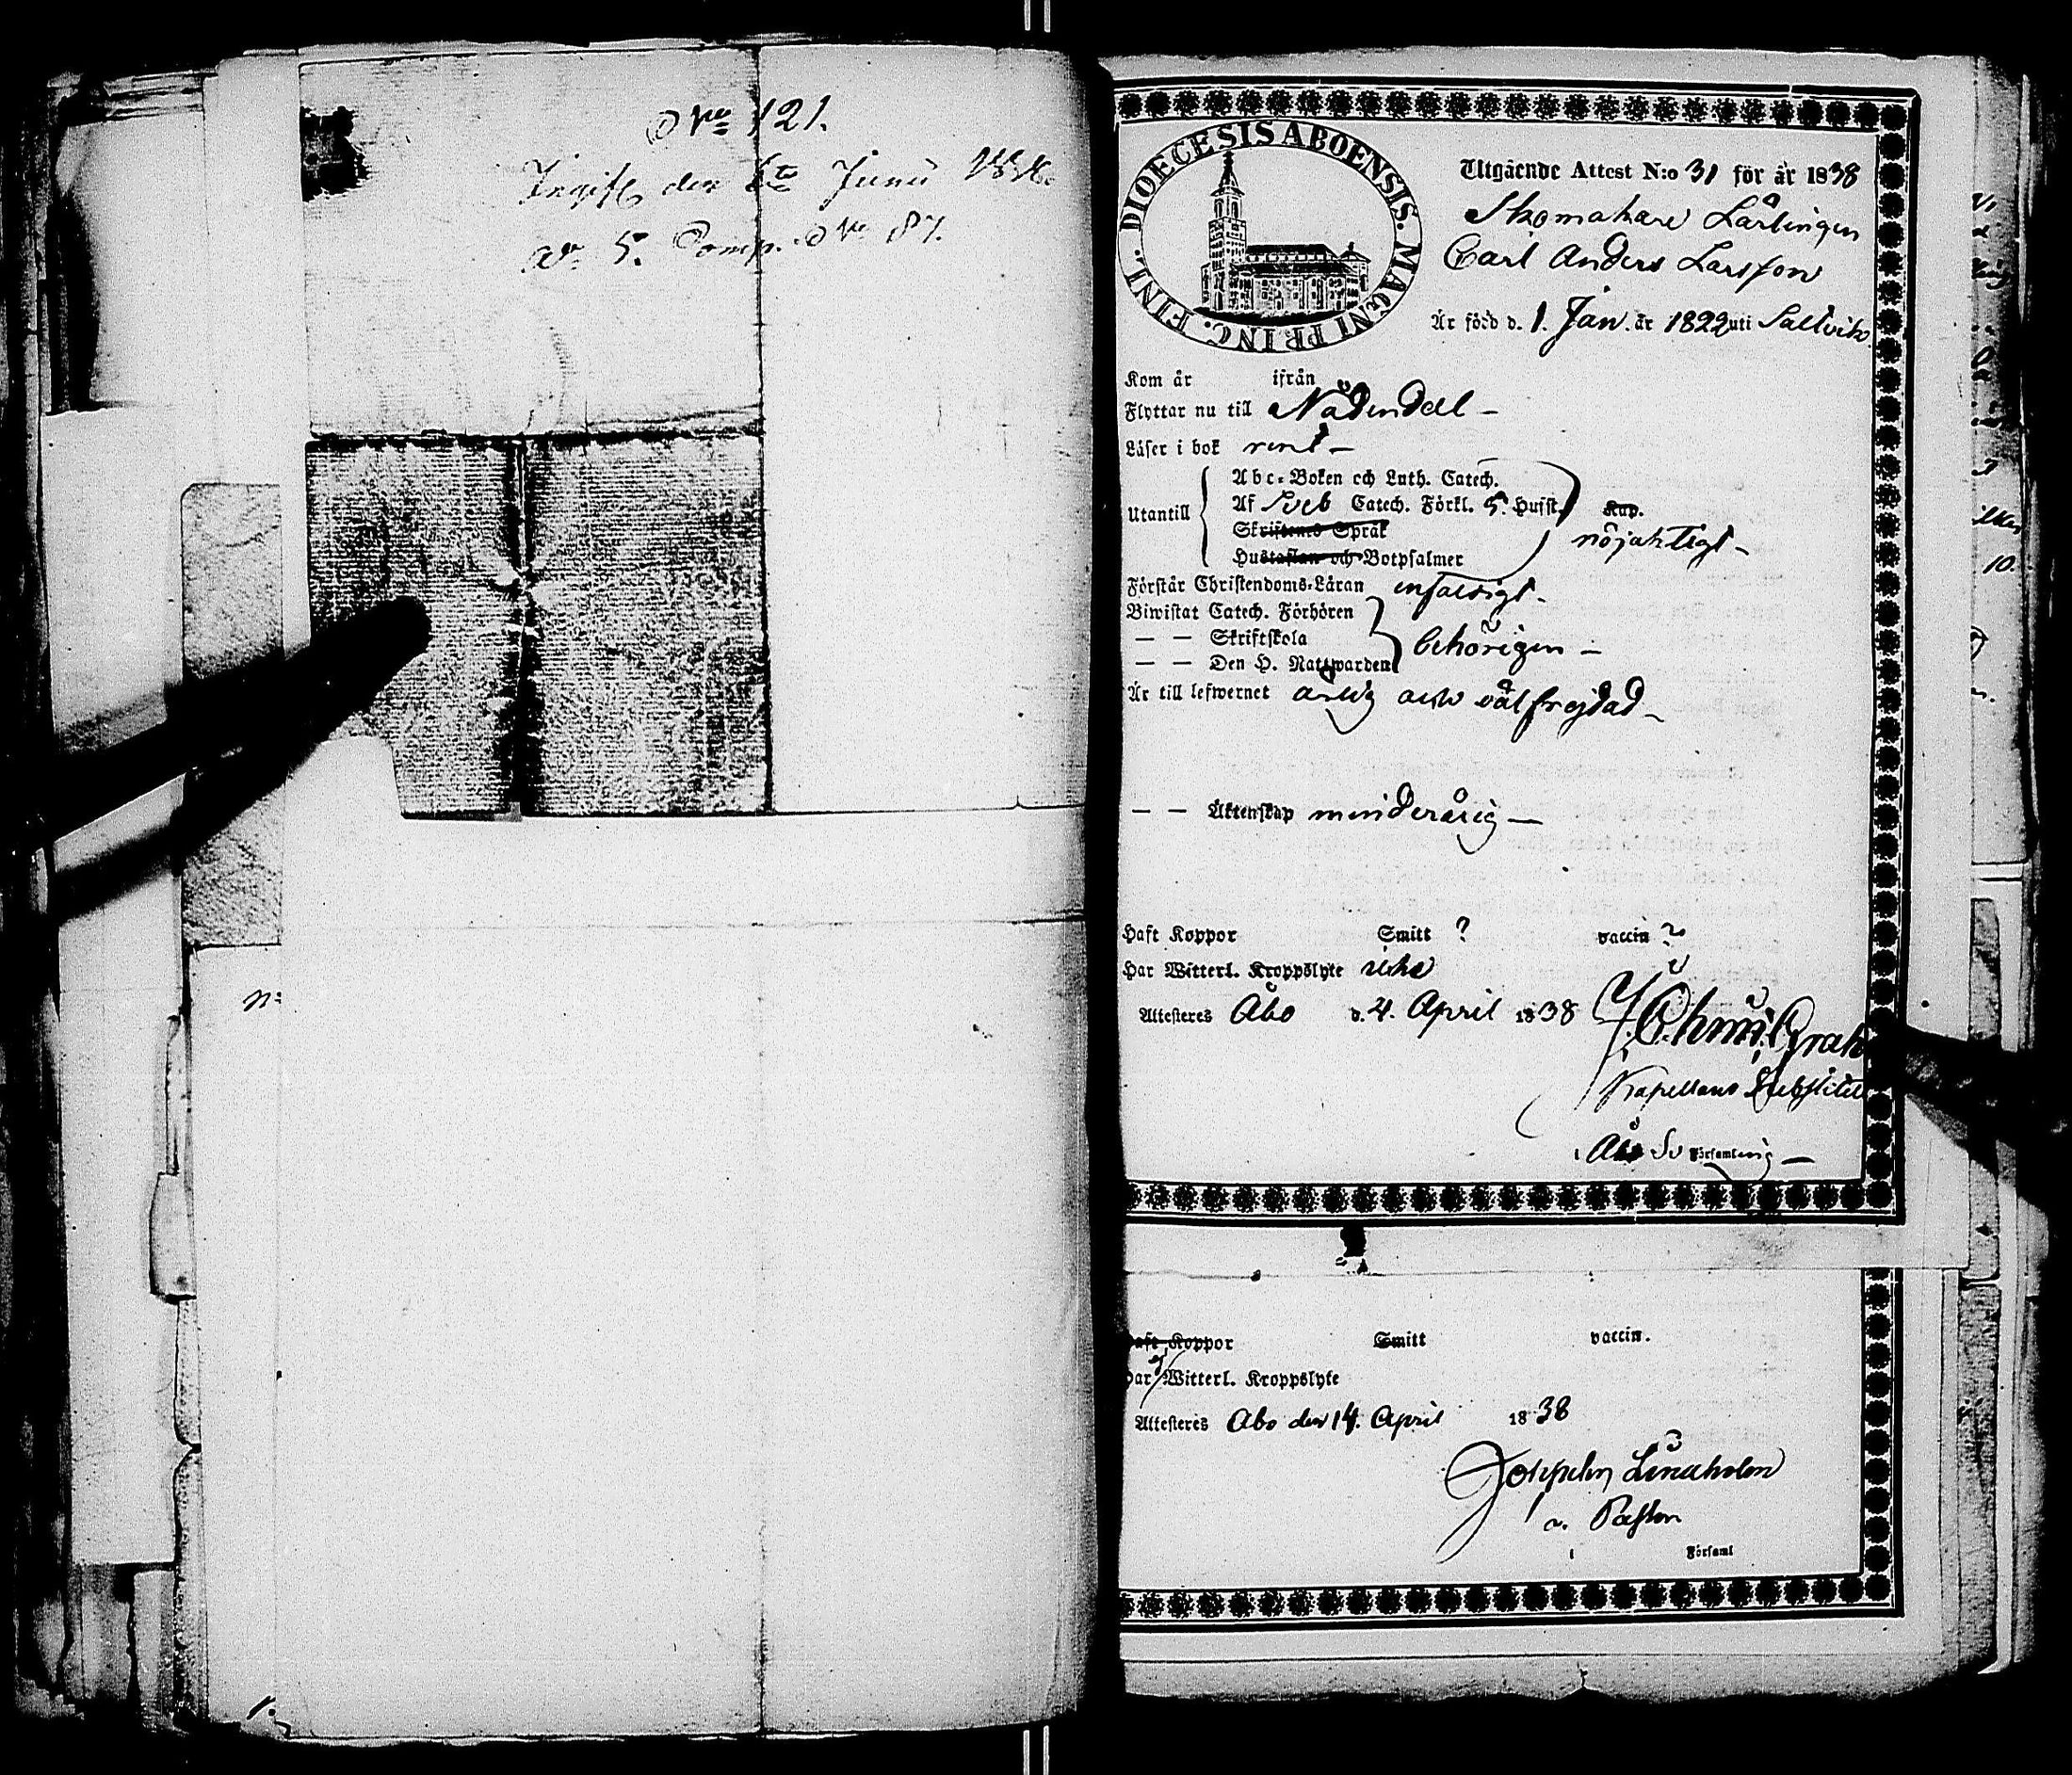 N:o 121.
Ingift den 6te Junii
5. Comp. N:o 87.
DIOECESIS ABOENSIS. MAGNI PRINC. FINL.
Utgående Attest N:o 31 för år 1838
Skomakare Lärlingen
Carl Anders Larsson
Är född d. 1. Jan. år 1822 uti Saltvik
Kom år ifrån
Flyttar nu till Nådendal –
Läser i bok rent –
Utantill
Abc-Boken och Luth. Catech.
Af Sveb Catech. Förkl. 5. Husst. Kap.
Skriftens Språk
Hustaflan och Botpsalmer
nöjaktigt –
Förstår Christendoms-Läran enfaldigt –
Biwistat Catech. Förhören
— — Skriftskola
— — Den H. Nattwarden
behörigen –
Är till lefwernet ärlig och välfrejdad –
— — Äktenskap minderårig –
Haft Koppor Smitt ? vaccin ?
Har Witterl. Kroppslyte icke
Attesteres Åbo d. 4. April 1838
Kapellans Substitut
i Åbo Sv Församling –
Haft Koppor Smitt vaccin.
Har ej Witterl. Kroppslyte
Attesteres Åbo den 14. April 1838
Josephin Lindholm
v. Pastor
i Församl